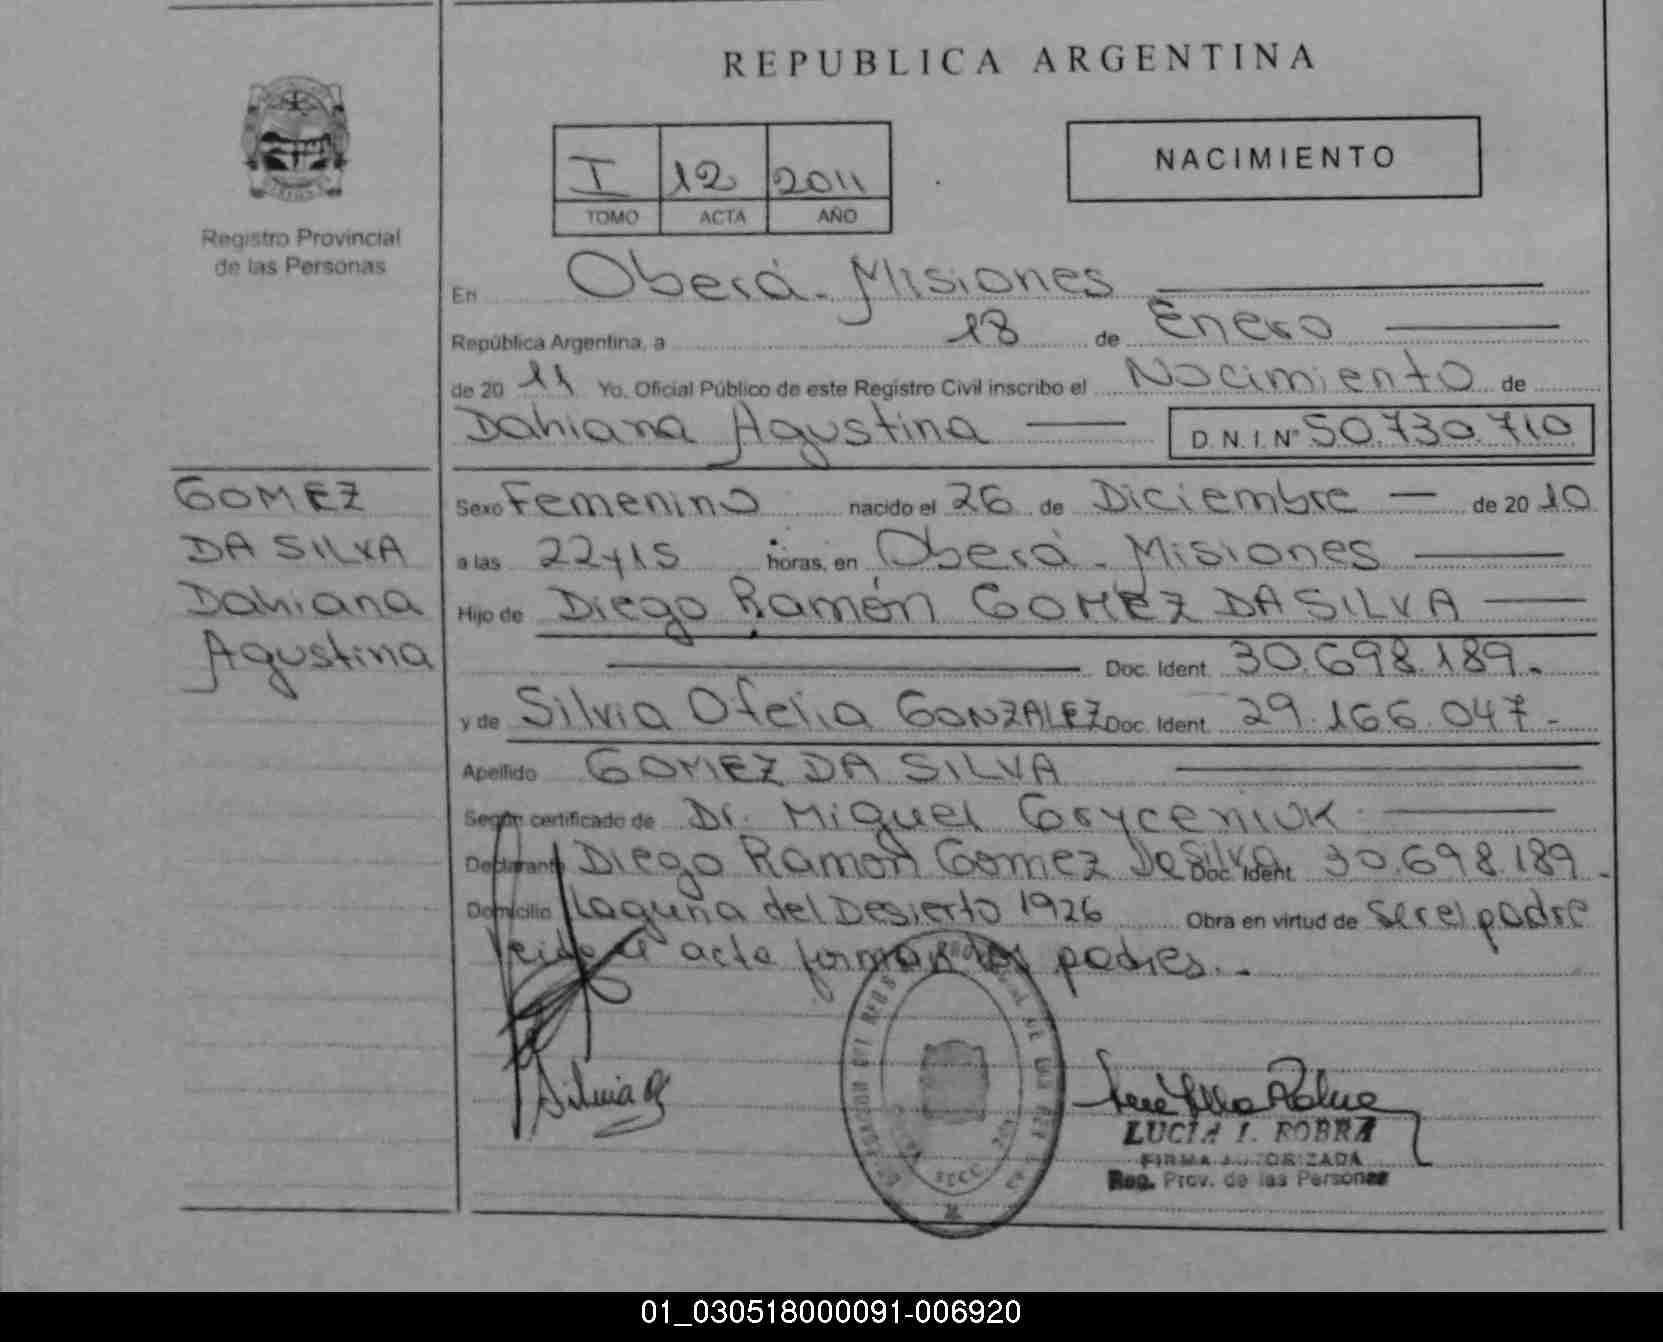 REPUBLICA ARGENTINA
NACIMIENTO
I 12 2011
TOMO ACTA AÑO
Registro Provincial
de las Personas
En Oberá - Misiones
República Argentina, a 18 de Enero
de 20 11 Yo, Oficial Público de este Registro Civil inscribo el Nacimiento de
Dahiana Agustina D.N.I. Nº 50.730.710
GOMEZ
DA SILVA
Dahiana
Agustina
Sexo Femenino nacido el 26 de Diciembre de 20 10
a las 22y15 horas, en Oberá - Misiones
Hijo de Diego Ramón GOMEZ DA SILVA
Doc. Ident. 30.698.189.-
y de Silvia Ofelia GONZALEZ Doc. Ident. 29.166.047-
Apellido GOMEZ DA SILVA
Según certificado de Dr. Miguel Goryceniuk
Declarante Diego Ramon Gomez Da Silva Doc. Ident. 30.698.189.
Domicilio Laguna del Desierto 1926 Obra en virtud de ser el padre
leida el acta forman los padres.-
Silvia G
LUCIA I. ROBRA
FIRMA AUTORIZADA
Reg. Prov. de las Personas
01_030518000091-006920